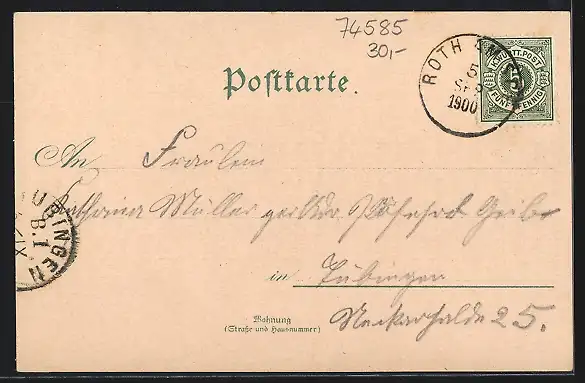 74585
30,-
Postkarte.
ROTH AM
5
SEP
1900
K. WÜRTT. POST
FÜNF PFENNIG
An Fräulein
Katharina Müller
TÜBINGEN
B.I
IX
in Tübingen
Wohnung
(Straße und Hausnummer)
Neckarhalde 25.